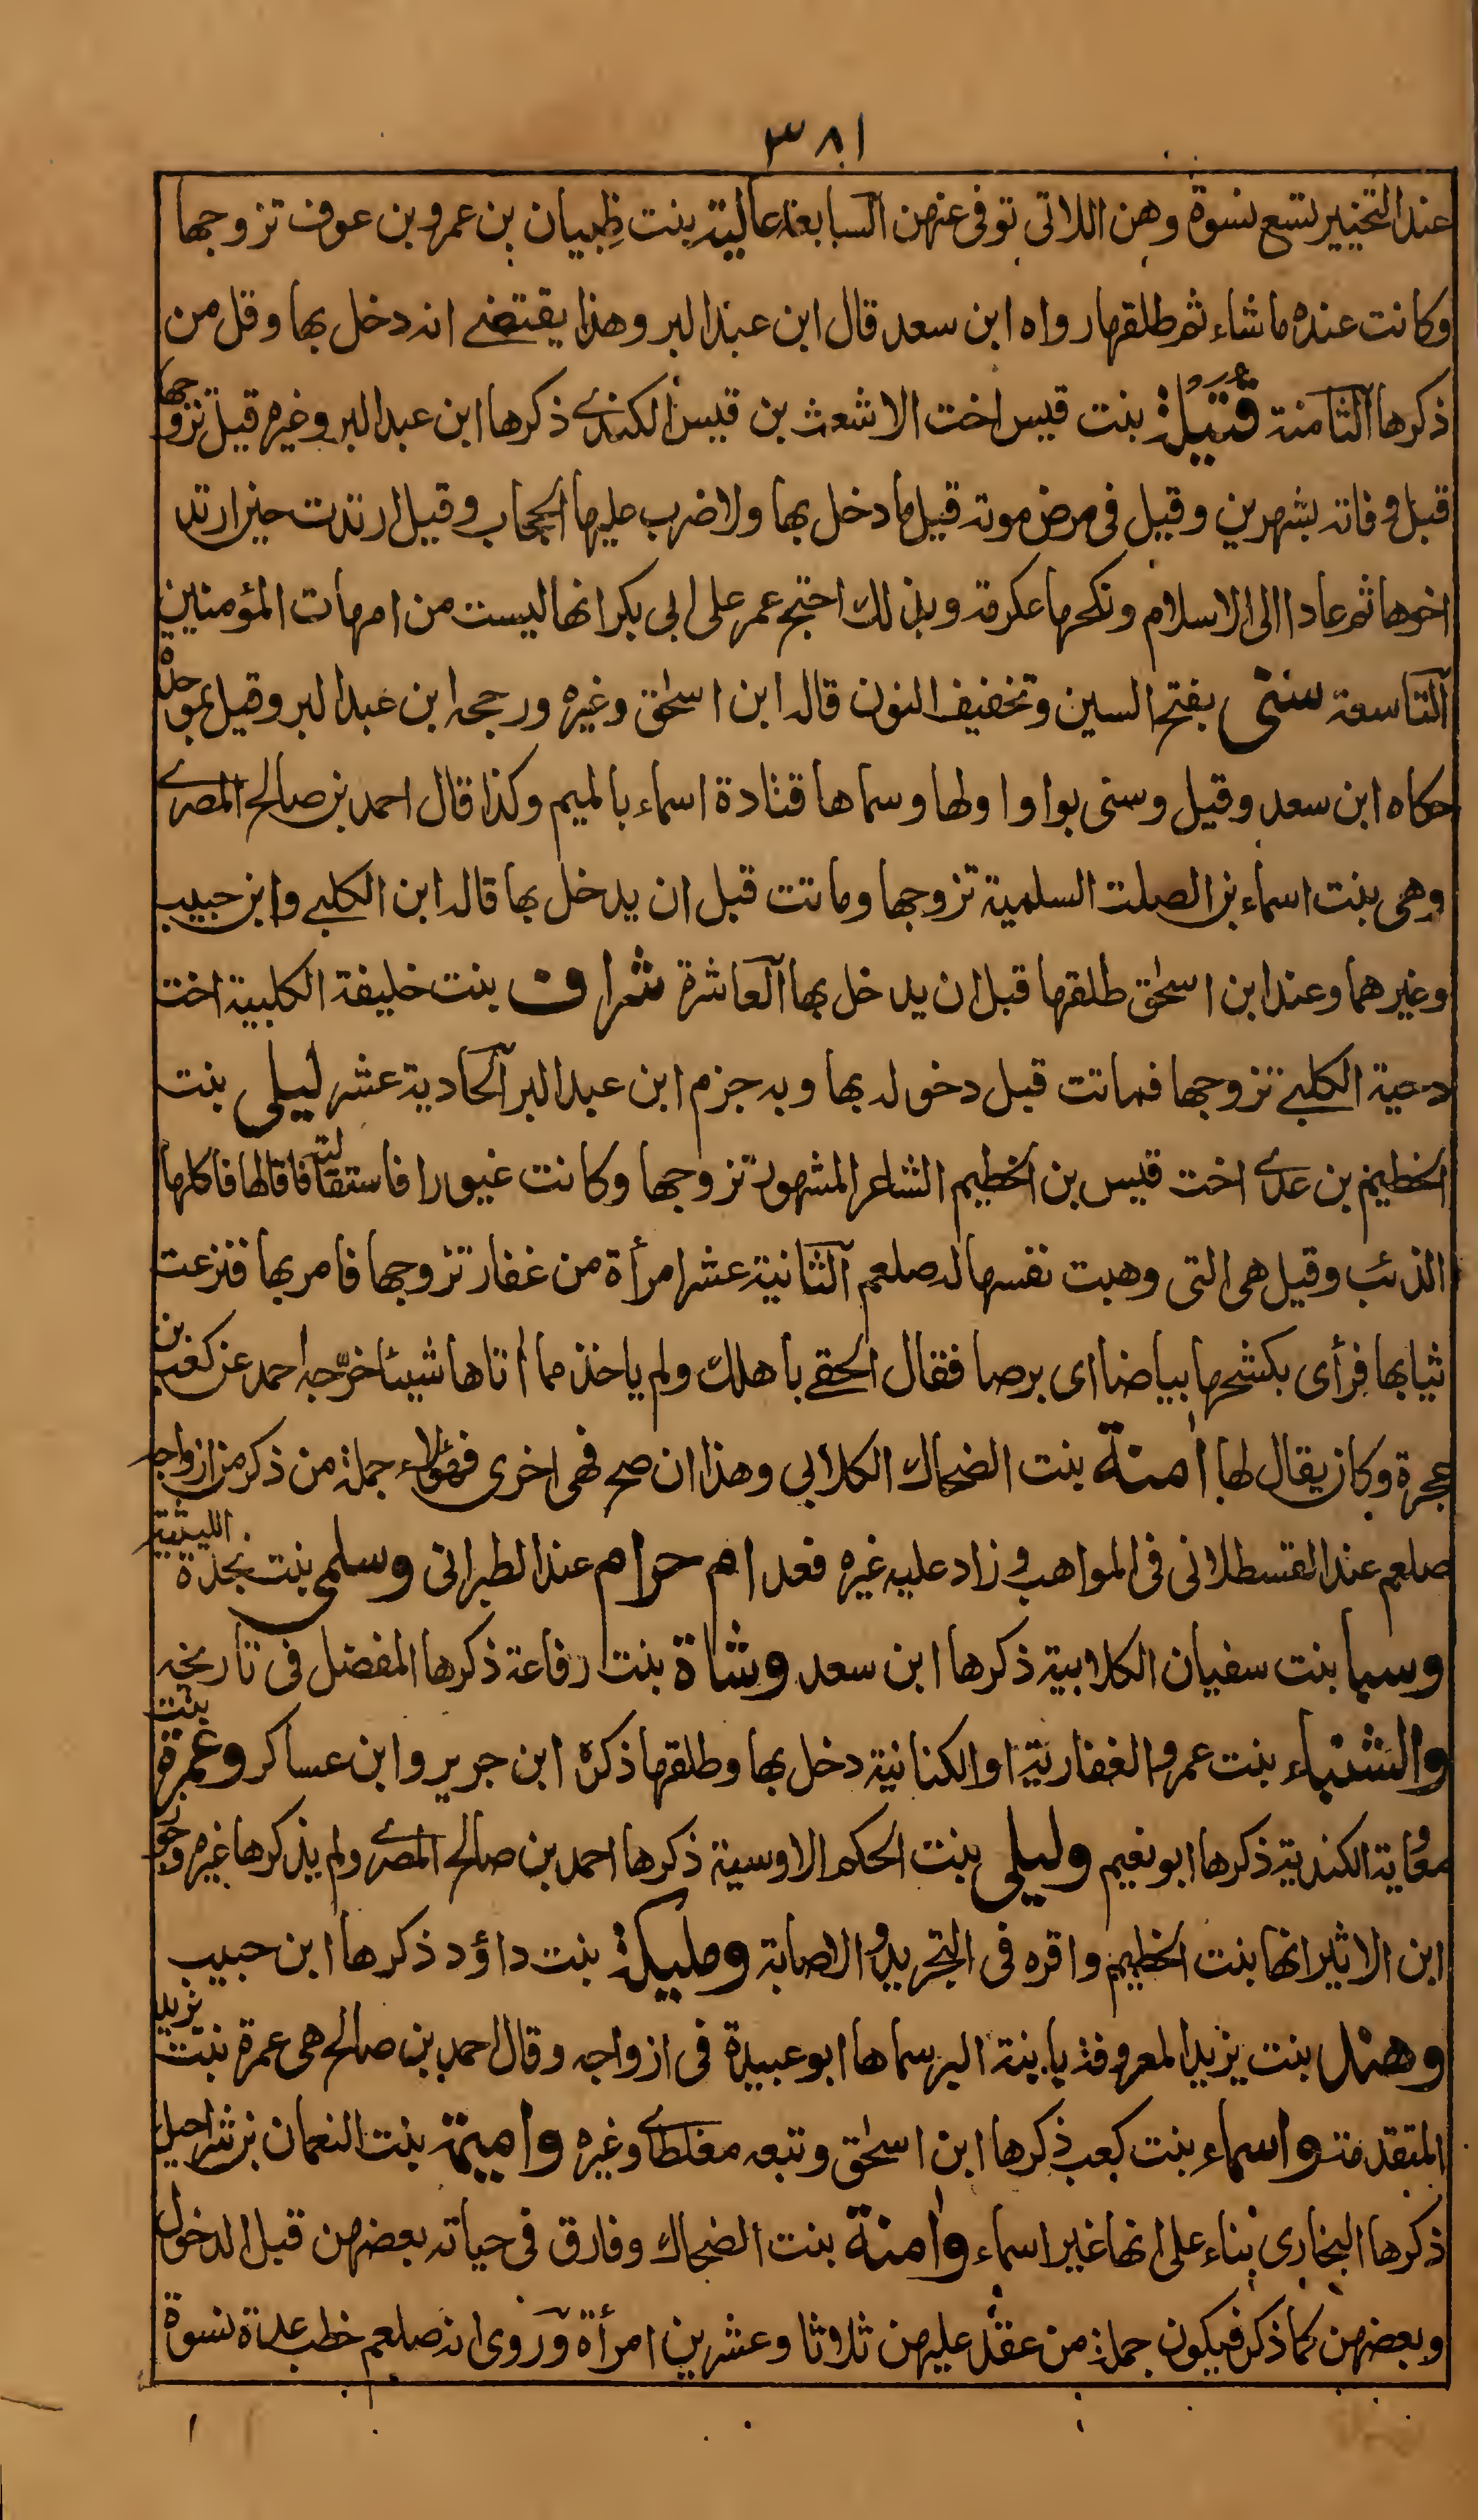 ٣٨١
عند التخيير تسع نسوة وهن اللاتى توفى عنهن السابعة عالية بنت ظِبيان بن عمرو بن عوف تزوجها
وكانت عنده ما شاء ثم طلقها رواه ابن سعد قال ابن عبد البر وهذا يقتضے انه دخل بها وقل من
ذكرها الثامنة قُتَيْلَة بنت قيس اخت الاشعث بن قيس الكندے ذكرها ابن عبد البر وغيره قيل تزوجها
قبل وفاته بشهرين وقيل فى مرض موته قيل ما دخل بها ولا ضرب عليها الحجاب وقيل ارتدت حين ارتد
اخوها ثم عادا الى الاسلام ونكحها عكرمة وبذلك احتج عمر على ابى بكر انها ليست من امهات المؤمنين
التاسعة سنى بفتح السين وتخفيف النون قاله ابن اسحٰق وغيره ورجحه ابن عبد البر وقيل بموحدة
حكاه ابن سعد وقيل وسنى بواو اولها وسماها قتادة اسماء بالميم وكذا قال احمد بن صالح المصرے
وهى بنت اسماء بن الصلت السلمية تزوجها وماتت قبل ان يدخل بها قاله ابن الكلبے وابن حبيب
وغيرهما وعند ابن اسحٰق طلقها قبل ان يدخل بها العاشرة شراف بنت خليفة الكلبية اخت
دحية الكلبے تزوجها فماتت قبل دخوله بها وبه جزم ابن عبد البر الحادية عشر ليلى بنت
الخطيم بن عدے اخت قيس بن الخطيم الشاعر المشهور تزوجها وكانت غيورا فاستقالته فاقالها فاكلها
الذئب وقيل هى التى وهبت نفسها له صلعم الثانية عشر امرأة من غفار تزوجها فامر بها فنزعت
ثيابها فرأى بكشحها بياضا اى برصا فقال الحقے باهلك ولم ياخذ مما اٰتاها شيئا خرّجه احمد عن كعب بن
عجرة وكان يقال لها اٰمنة بنت الضحاك الكلابى وهذا ان صح فهى اخرى فهؤلاء جملة من ذكر من ازواجه
صلعم عند القسطلانى فى المواهب وزاد عليه غيره فعد ام حرام عند الطبرانى وسلمى بنت نجدة الليثية
وسبا بنت سفيان الكلابية ذكرها ابن سعد وشاة بنت رفاعة ذكرها المفضل فى تاريخه
والشنباء بنت عمرو الغفارية او الكنانية دخل بها وطلقها ذكره ابن جرير وابن عساكر وعمرة بنت
معاوية الكندية ذكرها ابو نعيم وليلى بنت الحكم الاوسية ذكرها احمد بن صالح المصرے ولم يذكرها غيره وجوز
ابن الاثير انها بنت الخطيم واقره فى التجريد والاصابة ومليكة بنت داؤد ذكرها ابن حبيب
وهند بنت يزيد المعروفة بابنة البرسماها ابو عبيدة فى ازواجه وقال احمد بن صالح هى عمرة بنت يزيد
المتقدمة واسماء بنت كعب ذكرها ابن اسحٰق وتبعه مغلطاے وغيره واميمة بنت النعمان بن شراحيل
ذكرها البخارى بناء على انها غير اسماء واٰمنة بنت الضحاك وفارق فى حياته بعضهن قبل الدخول
وبعضهن كما ذكر فيكون جملة من عقد عليهن ثلاثا وعشرين امرأة وروى انه صلعم خطب عدة نسوة